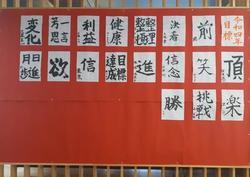 令和四年目標
前
決着
整理整頓
健康
利益
変化
頂
笑
信念
進
目標達成
信
欲
日進月歩
楽
挑戦
勝